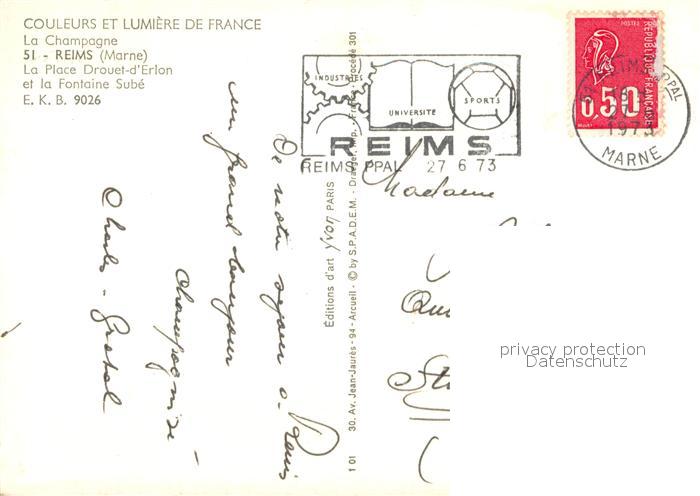 COULEURS ET LUMIÈRE DE FRANCE
La Champagne
51 - REIMS (Marne)
La Place Drouet-d'Erlon
et la Fontaine Subé
E. K. B. 9026
INDUSTRIES
UNIVERSITE
SPORTS
REIMS
REIMS PPAL 27 6 73
POSTES
RÉPUBLIQUE FRANÇAISE
0,50
REIMS PPAL
27
1973
MARNE
De notre séjour à Reims
un grand bonjour
champenois
Charles -
Éditions d'art yvon PARIS
30, Av. Jean-Jaurès - 94 - Arcueil - © by S.P.A.D.E.M. - Draeger, Imp. - France - Procédé 301
1 01
Madame
privacy protection
Datenschutz